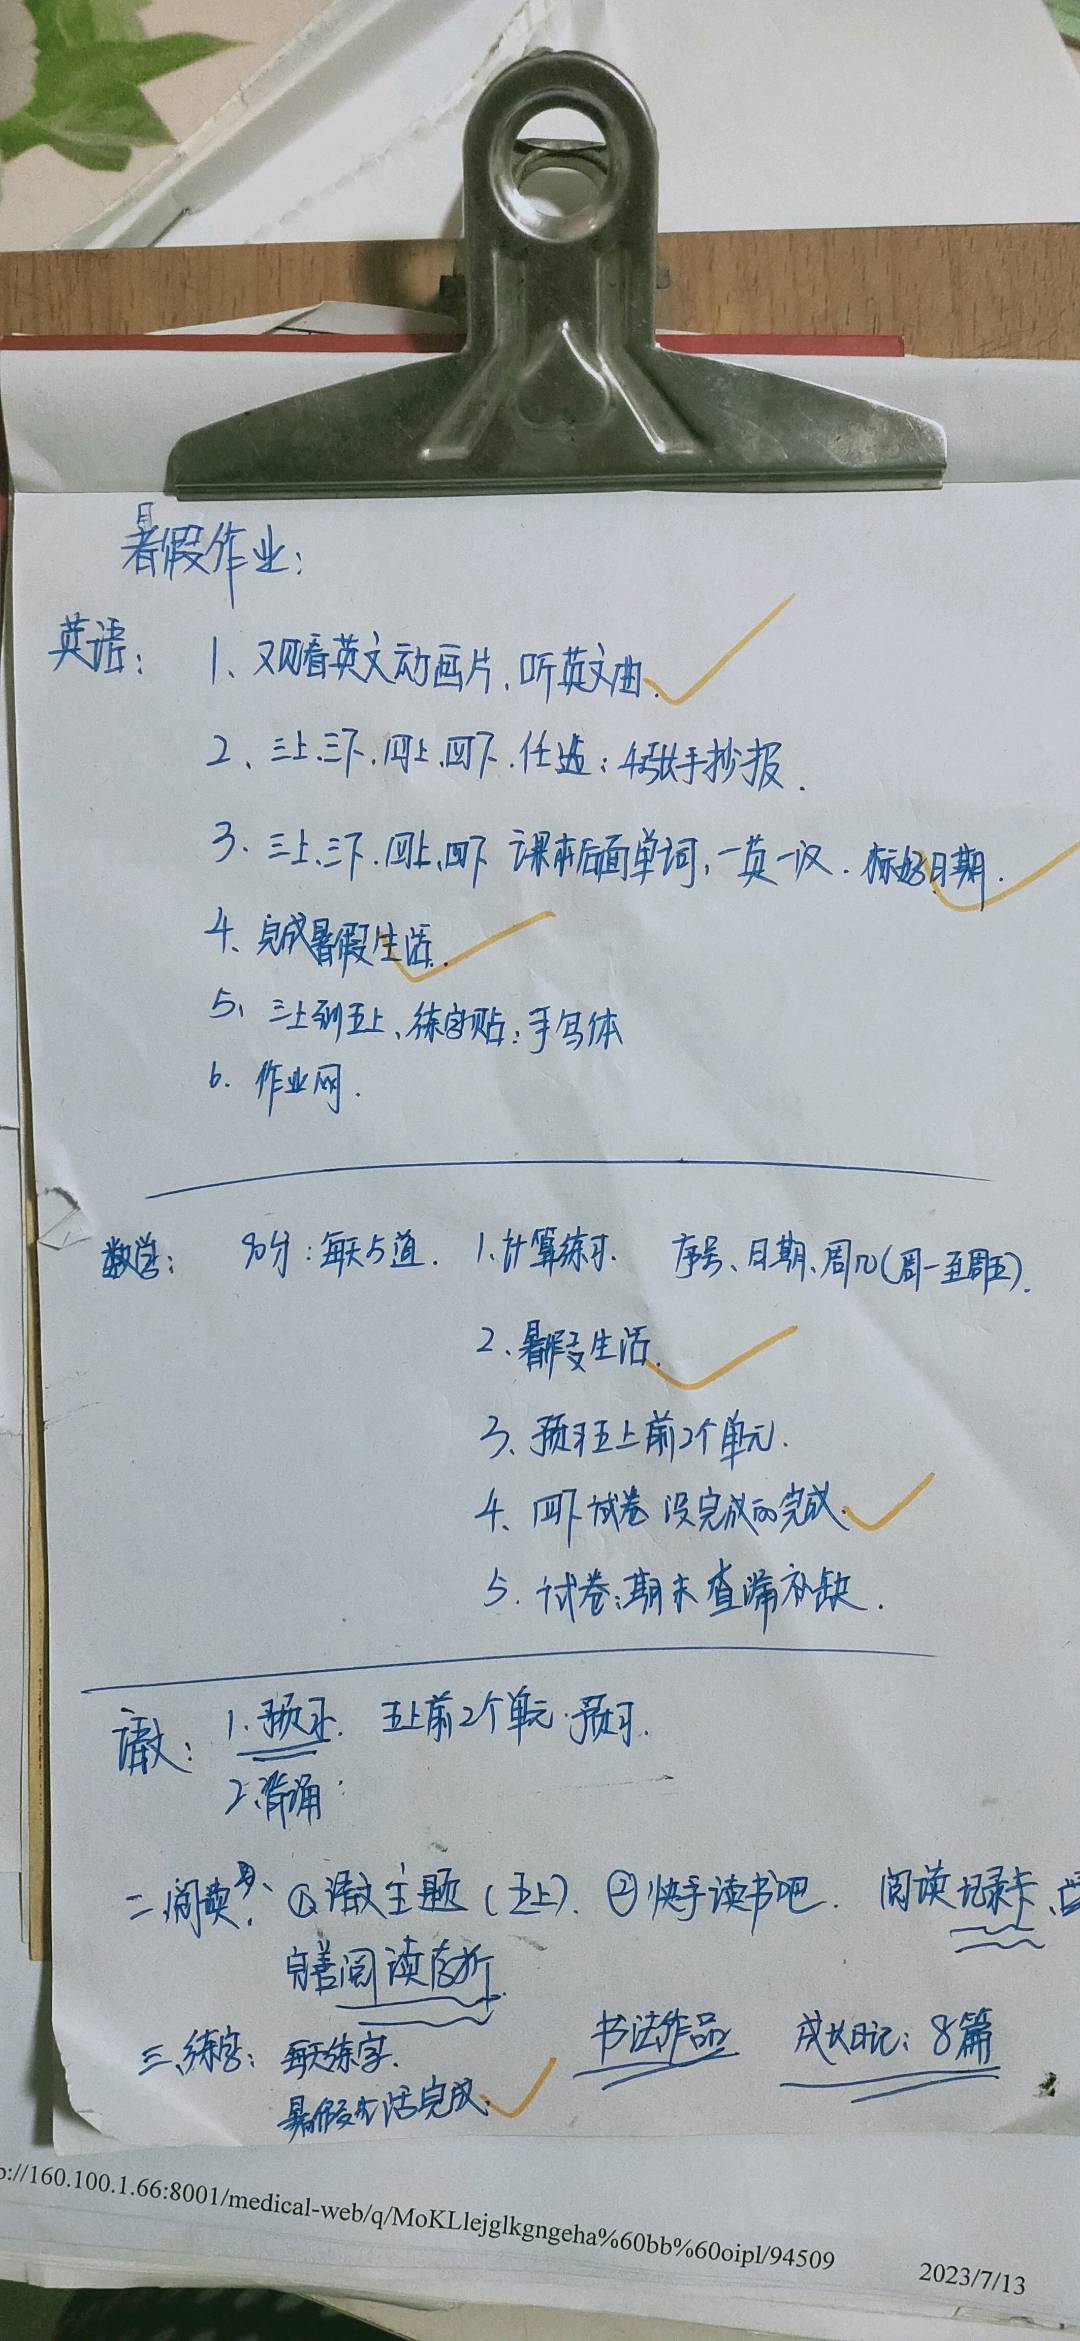 暑假作业:
英语: 1、观看英文动画片.听英文曲.
2、三上.三下.四上.四下.任选:4张手抄报.
3、三上、三下.四上、四下 课本后面单词,一英一汉.标好日期.
4、完成暑假生活.
5、三上到五上、练字贴:手写体
6.作业网.
数学: 30分:每天5道. 1.计算练习. 序号、日期、周几(周一至周五).
2.暑假生活.
3、预习五上前2个单元.
4、四下试卷 没完成的完成.
5.试卷:期末查漏补缺.
语文: 1.预习. 五上前2个单元.预习.
2.背诵:
二、阅读、①语文主题(五上).②快乐读书吧. 阅读记录卡、
完善阅读存折.
三、练字: 每天练字. 书法作品 成长日记:8篇
暑假生活完成.
p://160.100.1.66:8001/medical-web/q/MoKLlejglkgngeha%60bb%60oipl/94509 2023/7/13